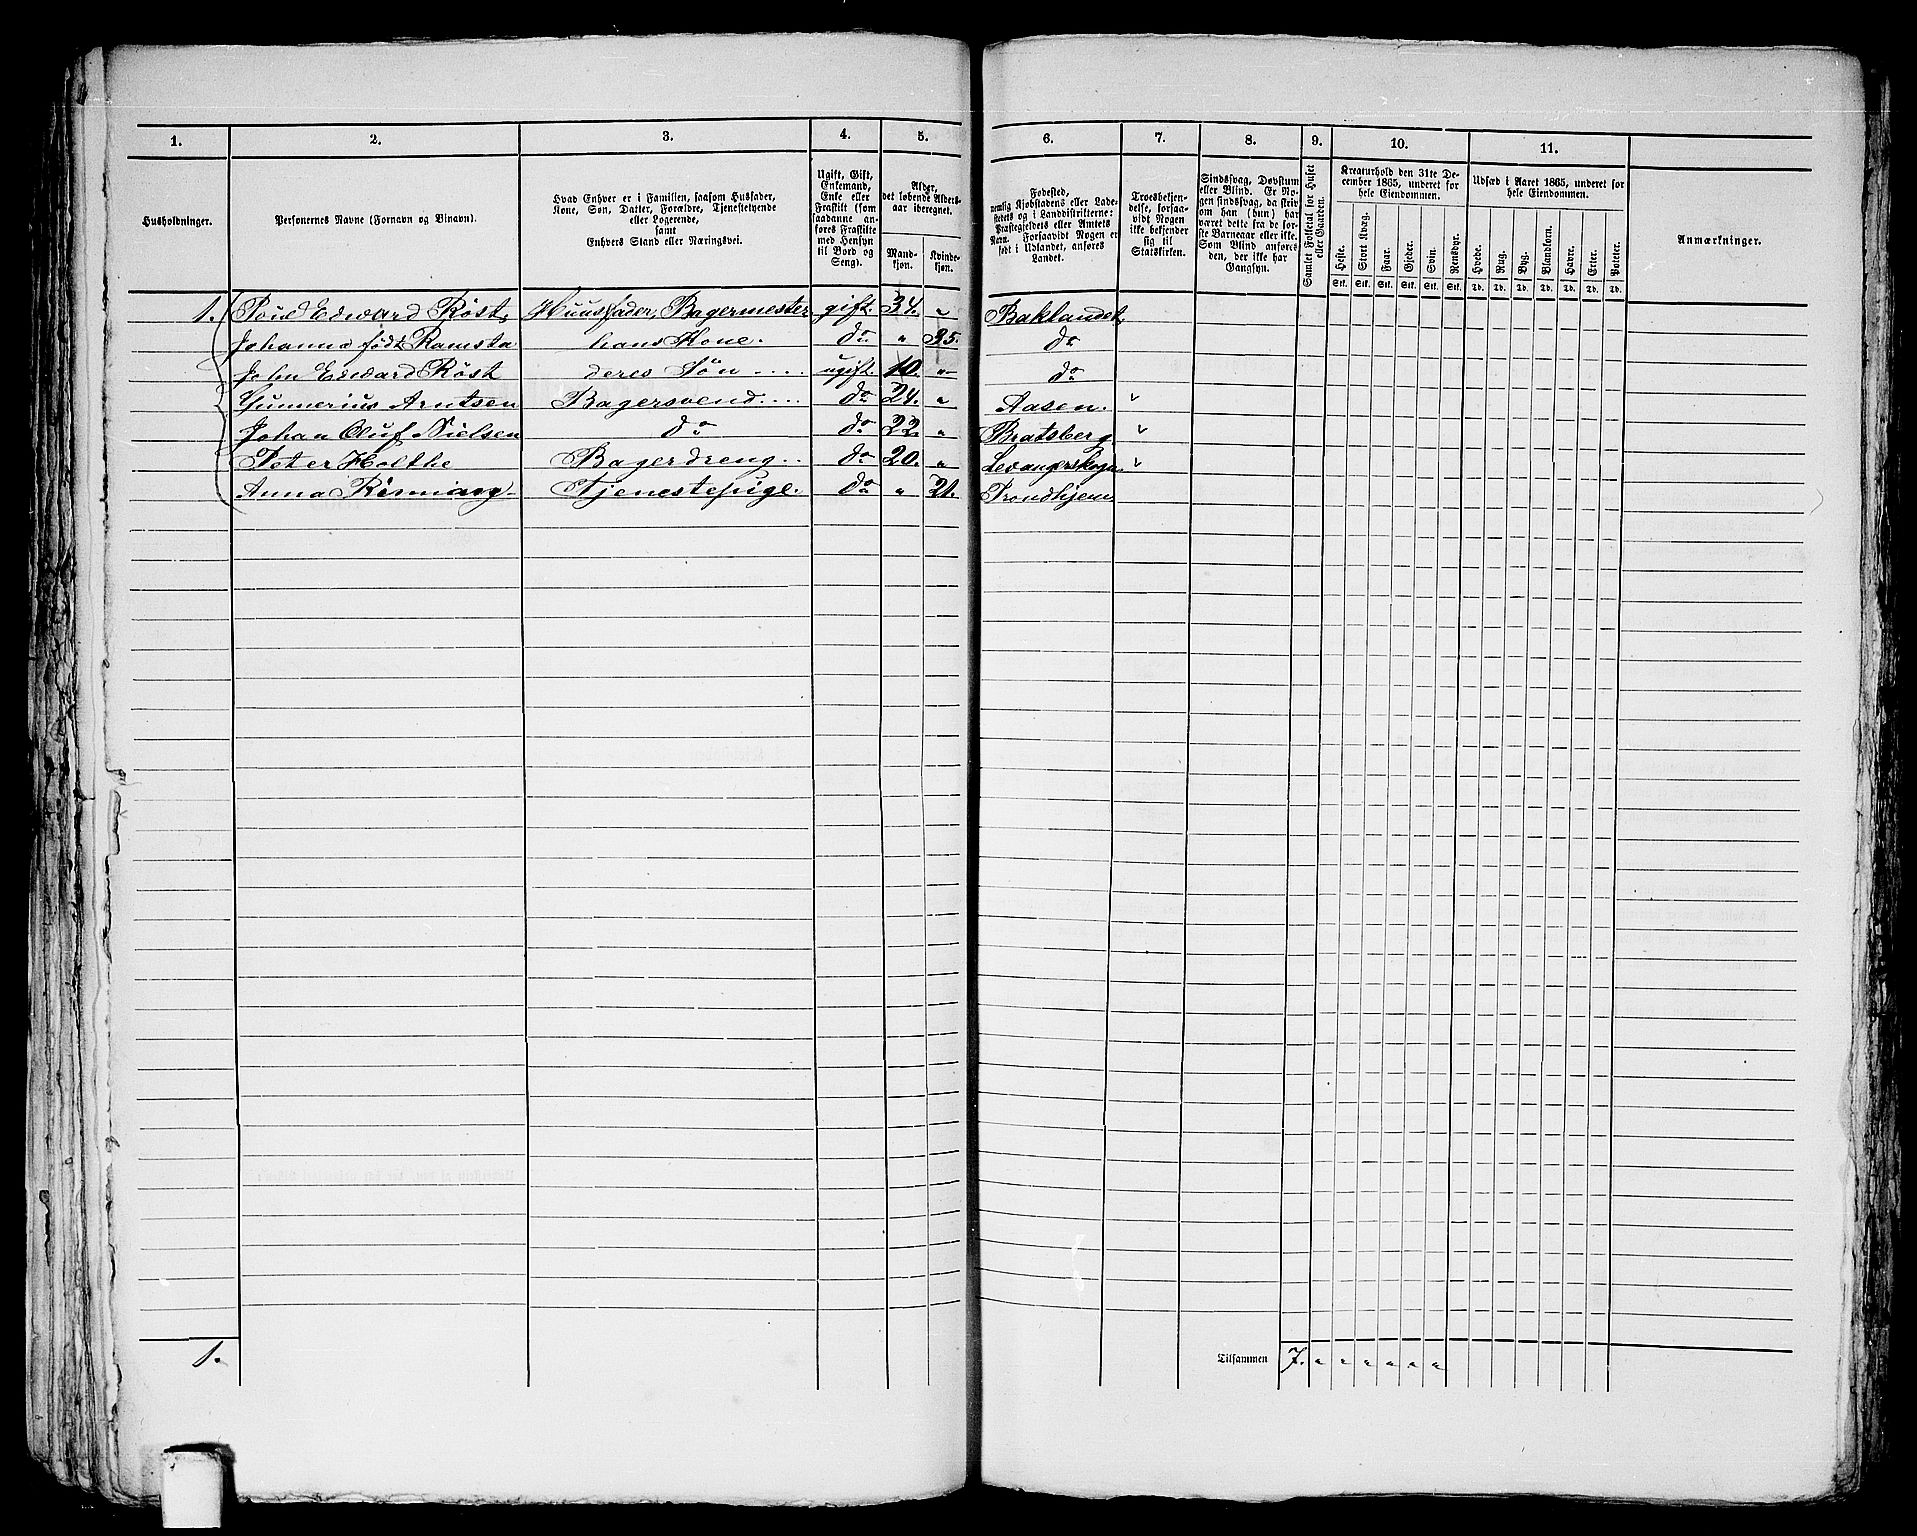 1. 2. 3. 4. 5. 6. 7. 8. 9. 10. 11.
Husholdninger.
Personernes Navne (Fornavn og Tilnavn).
Hvad Enhver er i Familien, saasom Husfader,
Kone, Søn, Datter, Forældre, Tjenestetyende
eller Logerende,
samt
Enhvers Stand eller Næringsvei.
Ugift, Gift,
Enkemand,
Enke eller
Fraskilt (som
saadanne an-
føres Fraskilte
med Hensyn
til Bord og
Seng).
Alder,
det løbende Alders-
aar iberegnet.
Mand-
kjøn.
Kvinde-
kjøn.
Fødested,
nemlig Kjøbstadens eller Lade-
stedets og i Landdistrikterne:
Præstegjeldets eller Amtets
Navn. Forsaavidt Nogen er
født i Udlandet, anføres
Landet.
Troesbekjen-
delse, forsaa-
vidt Nogen
ikke bekjender
sig til
Statskirken.
Sindssvag, Døvstum
eller Blind. Er No-
gen sindssvag, da skriv
om han (hun) har
været dette fra de før-
ste Barneaar eller ikke.
Som Blind anføres
den, der ikke har
Gangsyn.
Samlet Folketal for Huset
eller Gaarden.
Kreaturhold den 31te De-
cember 1865, underet for
hele Eiendommen.
Heste. Stort Kvæg. Faar. Gjeder. Svin. Rensdyr.
Stk. Stk. Stk. Stk. Stk. Stk.
Udsæd i Aaret 1865, underet for
hele Eiendommen.
Hvede. Rug. Byg. Blandkorn. Havre. Erter. Poteter.
Td. Td. Td. Td. Td. Td. Td.
Anmærkninger.
1. Edward Röst, Huusfader, Bagermester gift. 34. " Baklandet,
Johanna født Ramsta hans Kone. do " 35. do
John Edward Röst deres Søn ugift. 10. " do
Gunnerius Arntsen Bagersvend. do 24. " Aasen.
Johan Oluf Nielsen do do 22. " Bratsberg
Peter Holthe Bagerdreng do 20. " Levangerskogn
Anna Tjenestepige. do " 21. Trondhjem
1. Tilsammen 7. " " " " " "